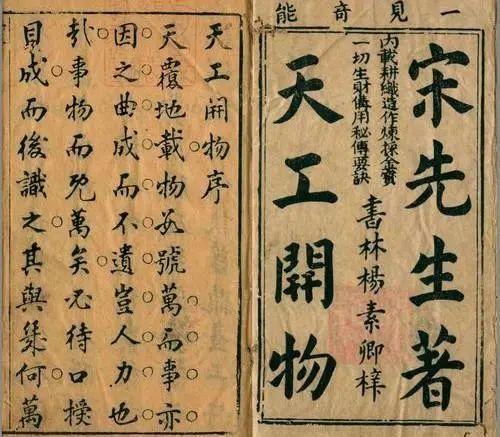 一見奇能
宋先生著
內載耕織造作煉採金寶
一切生財備用秘傳要訣
書林楊素卿梓
天工開物
天工開物序
天覆地載物數號萬而事亦
因之曲成而不遺豈人力也
哉事物而旣萬矣必待口授
目成而後識之其與幾何萬